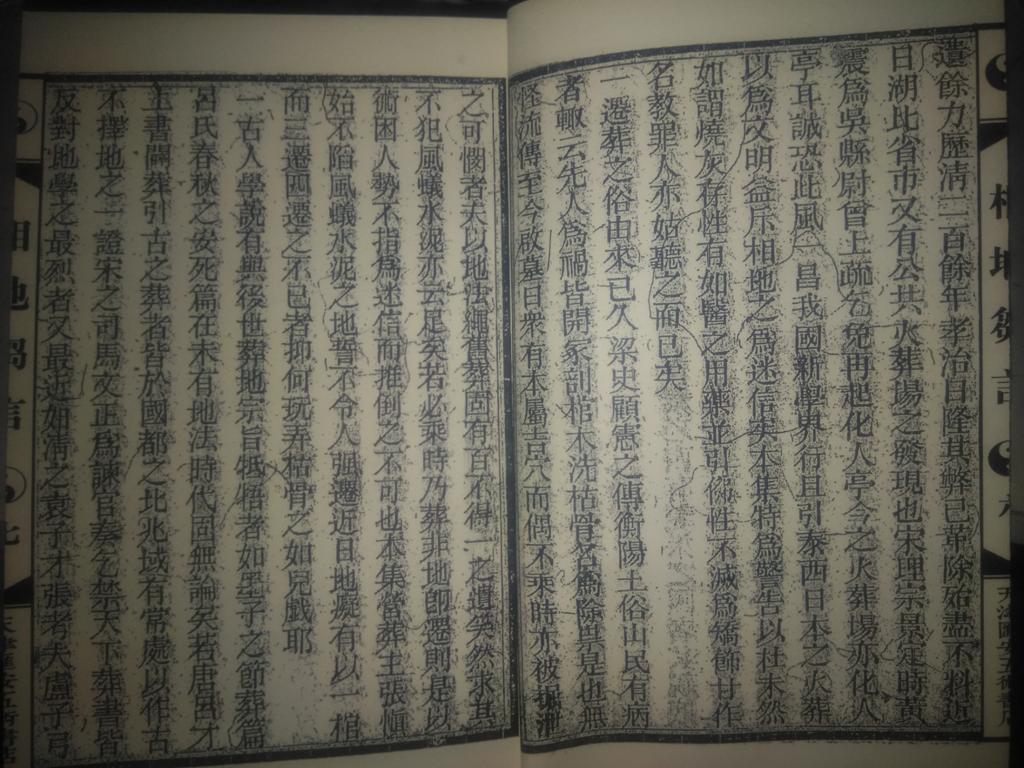 遺餘力歷清二百餘年孝治日隆其弊已革除殆盡不料近
日湖北省市又有公共火葬場之發現也宋理宗景定時黃
震爲吳縣尉曾上疏乞免再起化人亭今之火葬場亦化人
亭耳誠恐此風一昌我國新學界行且引泰西日本之火葬
以爲文明益斥相地之爲迷信矣本集特爲警告以杜未然
如謂燒灰存性有如醫之用藥並引佛性不滅爲矯飾甘作
名教罪人亦姑聽之而已矣
一遷葬之俗由來已久梁史顧憲之傳衡陽土俗山民有病
者輒云先人爲禍皆開冢剖棺木洗枯骨名爲除祟是也無
怪流傳至今啟墓日衆有本屬吉穴而偶不乘時亦被
之可憫者夫以地法繩舊葬固有百不得一之遺矣然求其
不犯風蟻水泥亦云足矣若必乘時乃葬非地師遷則是以
術困人勢不指爲迷信而推倒之不可也本集營葬主張愼
始不陷風蟻水泥之地誓不令人强遷近日地癡有以一棺
而三遷四遷之不已者抑何玩弄枯骨之如兒戲耶
一古人學說有與後世葬地宗旨牴牾者如墨子之節葬篇
呂氏春秋之安死篇在未有地法時代固無論矣若唐呂才
上書闢葬引古之葬者皆於國都之北兆域有常處以作古
不擇地之一證宋之司馬文正爲諫官奏乞禁天下葬書皆
反對地學之最烈者又最近如淸之袁子才張考夫盧子弓
六
七